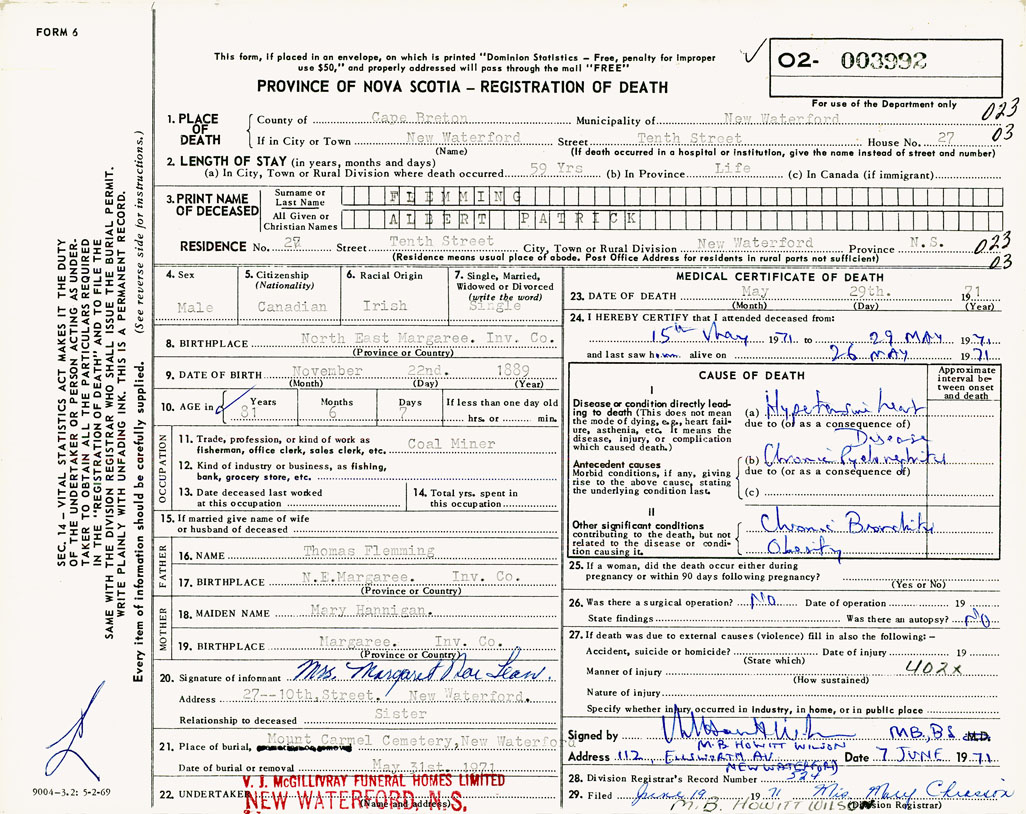 FORM 6
This form, if placed in an envelope, on which is printed "Dominion Statistics – Free, penalty for Improper
use $50," and properly addressed will pass through the mail "FREE"
O2- 003992
For use of the Department only
PROVINCE OF NOVA SCOTIA – REGISTRATION OF DEATH
023
03
1. PLACE OF DEATH
County of Cape Breton Municipality of New Waterford
If in City or Town New Waterford Street Tenth Street House No. 27
(Name) (If death occurred in a hospital or institution, give the name instead of street and number)
2. LENGTH OF STAY (in years, months and days)
(a) In City, Town or Rural Division where death occurred 59 Yrs (b) In Province Life (c) In Canada (if immigrant)
3. PRINT NAME OF DECEASED
Surname or Last Name FLEMMING
All Given or Christian Names ALBERT PATRICK
RESIDENCE No. 27 Street Tenth Street City, Town or Rural Division New Waterford Province N.S.
(Residence means usual place of abode. Post Office Address for residents in rural parts not sufficient)
023
03
4. Sex
Male
5. Citizenship
(Nationality)
Canadian
6. Racial Origin
Irish
7. Single, Married,
Widowed or Divorced
(write the word)
Single
8. BIRTHPLACE North East Margaree. Inv. Co.
(Province or Country)
9. DATE OF BIRTH November 22nd. 1889
(Month) (Day) (Year)
10. AGE in Years Months Days If less than one day old
81 6 7 hrs. or min.
OCCUPATION
11. Trade, profession, or kind of work as
fisherman, office clerk, sales clerk, etc. Coal Miner
12. Kind of industry or business, as fishing,
bank, grocery store, etc.
13. Date deceased last worked
at this occupation
14. Total yrs. spent in
this occupation
15. If married give name of wife
or husband of deceased
FATHER
16. NAME Thomas Flemming
17. BIRTHPLACE N.E.Margaree. Inv. Co.
(Province or Country)
MOTHER
18. MAIDEN NAME Mary Hannigan.
19. BIRTHPLACE Margaree. Inv. Co.
(Province or Country)
20. Signature of informant Mrs. Margaret
Address 27--10th,Street. New Waterford.
Relationship to deceased Sister
21. Place of burial, Mount Carmel Cemetery,New Waterford
Date of burial or removal May 31st. 1971
22. UNDERTAKER V. J. McGILLIVRAY FUNERAL HOMES LIMITED
NEW WATERFORD, N.S.
(Name and address)
MEDICAL CERTIFICATE OF DEATH
23. DATE OF DEATH May 29th. 1971
(Month) (Day) (Year)
24. I HEREBY CERTIFY that I attended deceased from:
15th May 1971 to 29 MAY 1971
and last saw him alive on 26 MAY 1971
CAUSE OF DEATH
Approximate
interval be-
tween onset
and death
I
Disease or condition directly lead-
ing to death (This does not mean
the mode of dying, e.g., heart fail-
ure, asthenia, etc. It means the
disease, injury, or complication
which caused death.)
(a) Hypertensive heart
due to (or as a consequence of)
Disease
Antecedent causes
Morbid conditions, if any, giving
rise to the above cause, stating
the underlying condition last.
(b) Chronic Pyelonephritis
due to (or as a consequence of)
(c)
II
Other significant conditions
contributing to the death, but not
related to the disease or condi-
tion causing it.
Chronic Bronchitis
Obesity
25. If a woman, did the death occur either during
pregnancy or within 90 days following pregnancy?
(Yes or No)
26. Was there a surgical operation? NO Date of operation 19
State findings Was there an autopsy? NO
27. If death was due to external causes (violence) fill in also the following: –
Accident, suicide or homicide? Date of injury 19
(State which)
Manner of injury 402x
(How sustained)
Nature of injury
Specify whether injury occurred in industry, in home, or in public place
Signed by MB, BS. M.D.
M.B HOWITT WILSON
Address 112, ELLSWORTH AV Date 7 JUNE 1971
NEW WATERFORD
28. Division Registrar's Record Number 524
29. Filed June 19 1971 Mrs Mary Chiasson
M. B. HOWITT WILSON (Division Registrar)
SEC. 14 – VITAL STATISTICS ACT MAKES IT THE DUTY
OF THE UNDERTAKER OR PERSON ACTING AS UNDER-
TAKER TO OBTAIN ALL THE PARTICULARS REQUIRED
IN THE "REGISTRATION OF DEATH" AND TO FILE THE
SAME WITH THE DIVISION REGISTRAR WHO SHALL ISSUE THE BURIAL PERMIT.
WRITE PLAINLY WITH UNFADING INK. THIS IS A PERMANENT RECORD.
Every item of information should be carefully supplied. (See reverse side for instructions.)
9004-3.2: 5-2-69